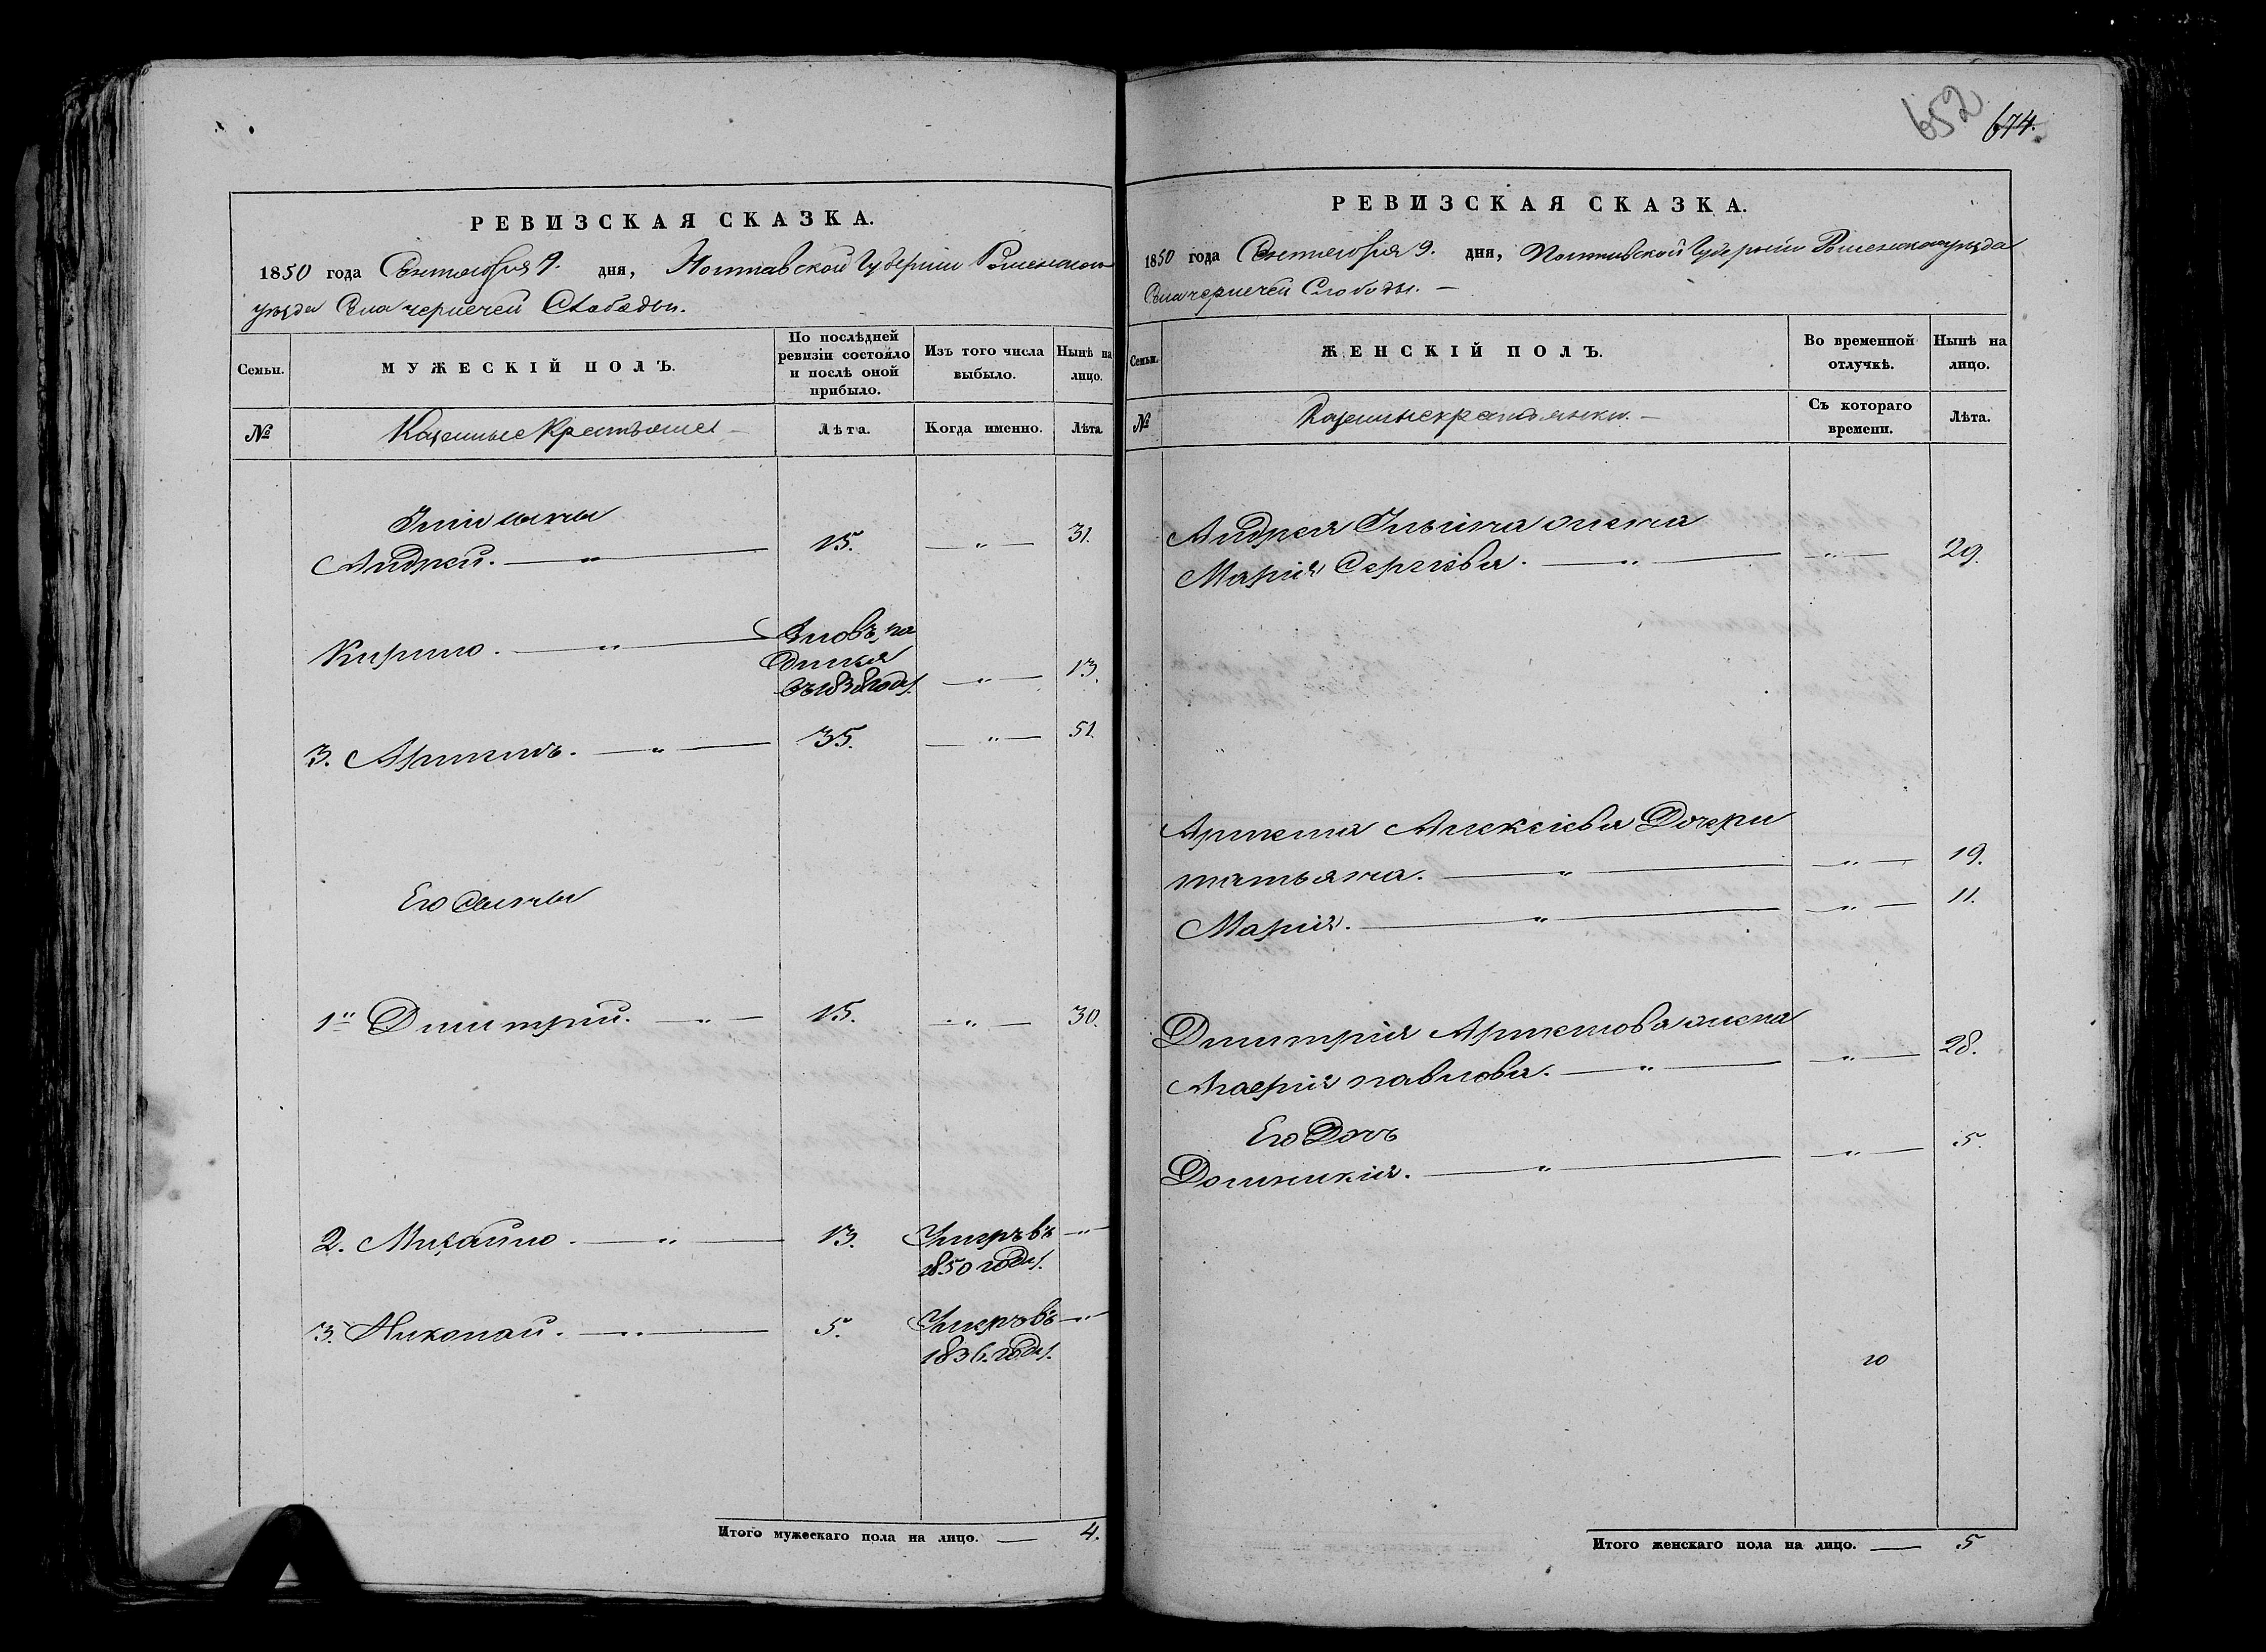 652
674.
РЕВИЗСКАЯ СКАЗКА.
1850 года Сентября 9. дня, Полтавской Губернии Роменского
уѣзда Села чернечей Слободы.
Семьи.
МУЖЕСКІЙ ПОЛЪ.
По послѣдней
ревизіи состояло
и послѣ оной
прибыло.
Изъ того числа
выбыло.
Нынѣ на
лицо.
№
Казенные Крестьяне
Лѣта.
Когда именно.
Лѣта
сыны
Андрей. 15. 31.
Кирило.
въ 1838 годѣ. 13.
3. Артемъ. 35. 51.
Его сыны
1й Димитрий. 15. 30.
2. Михайло. 13. Умеръ въ
1850 годѣ.
3. Николай. 5. Умеръ въ
1836. годѣ.
Итого мужескаго пола на лицо. 4.
РЕВИЗСКАЯ СКАЗКА.
1850 года Сентября 9. дня, Полтавской Губернии Роменского уѣзда
Села чернечей Слободы.
Семьи.
ЖЕНСКІЙ ПОЛЪ.
Во временной
отлучкѣ.
Нынѣ на
лицо.
№
Казенные крестьянки.
Съ котораго
времени.
Лѣта.
Андрея Ильина жена
Марія Сергіева. 29.
Артема Алексіева Дочери
татьяна. 19.
Марія. 11.
Димитрія Артемова жена
павлова. 28.
Его Дочь
Домникія. 5.
Итого женскаго пола на лицо. 5